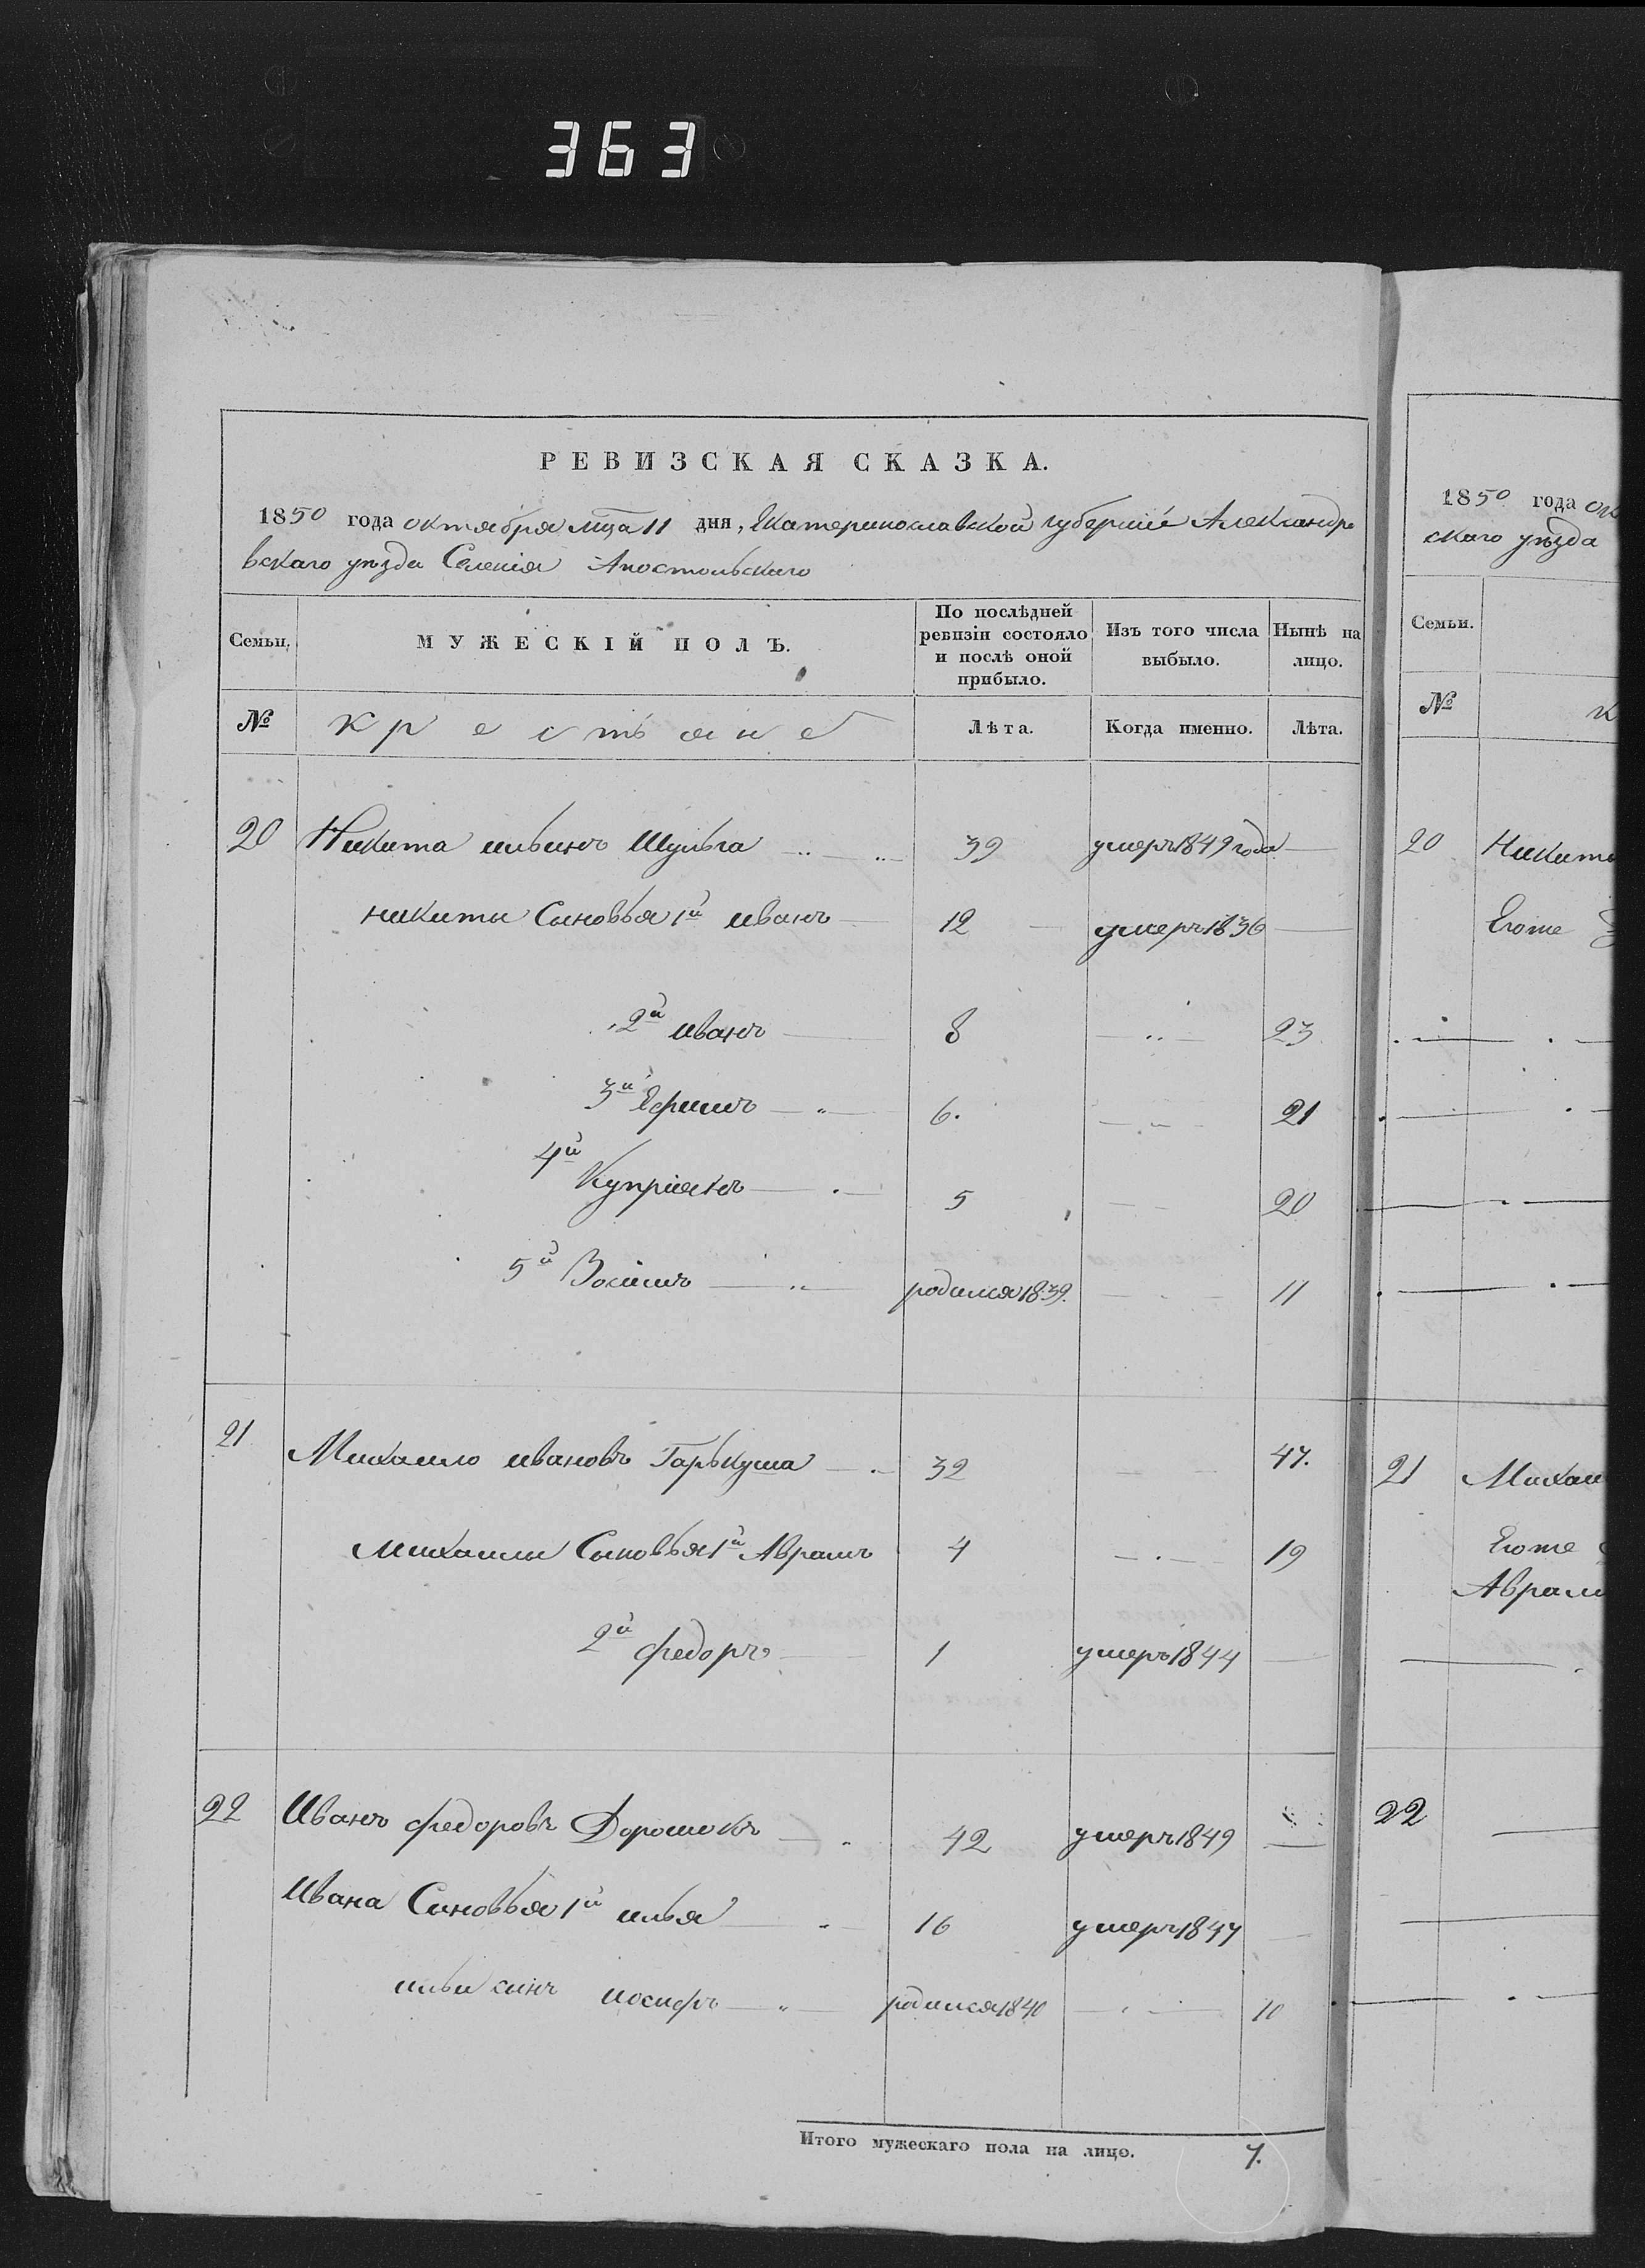 363
РЕВИЗСКАЯ СКАЗКА.
1850 года октября мца 11 дня, Екатеринославской губернiи Александро
вскаго уѣзда Селенiя Апостольскаго
Семьи. МУЖЕСКIЙ ПОЛЪ. По послѣдней ревизiи состояло и послѣ оной прибыло. Изъ того числа выбыло. Нынѣ на лицо.
№ Крестьяне Лѣта. Когда именно. Лѣта.
20 Никита ильинъ Шульга 39 умеръ 1849 года
никиты Сыновья 1й иванъ 12 умеръ 1836
2й иванъ 8 23
3й Ефимъ 6. 21
4й Купріянъ 5 20
5й родился 1839. 11
21 Михаило ивановъ Гарькуша 32 47.
михаилы Сыновья 1й Аврамъ 4 19
2й федоръ 1 умеръ 1844
22 Иванъ федоровъ Дорошокъ 42 умеръ 1849
Ивана Сыновья 1й илья 16 умеръ 1847
ильи сынъ иосифъ родился 1840 10
Итого мужескаго пола на лицо. 7.
1850 года ок
скаго уѣзда
Семьи.
№ к
20 Никит
Егоже
21 Михаи
Егоже
Аврам
22